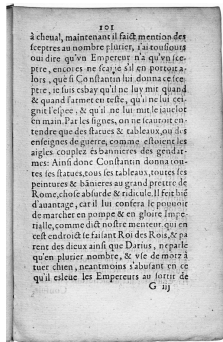 101
à cheval, maintenant il faict mention des
sceptres au nombre plurier, j'ai tousiours
oui dire qu'vn Empereur n'a qu'vn sce-
ptre, encores ne sçai-je s'il en portoit a-
lors, que si Constantin lui donna ce sce-
ptre, ie suis esbay qu'il ne luy mit quand
& quand l'armet en teste, qu'il ne lui cei-
gnit l'espee, & qu'il ne lui mit le jauelot
en main. Par les signes, on ne scauroit en-
tendre que des statues & tableaux, ou des
enseignes de guerre, comme estoient les
aigles couplez és bannieres des gendar-
mes: Ainsi donc Constantin donna tou-
tes ses statues, tous ses tableaux, toutes ses
peintures & bãnieres au grand prettre de
Rome, chose absurde & ridicule. Il seroit biẽ
d'auantage, car il lui confera le pouuoir
de marcher en pompe & en gloire Impe-
rialle, comme dict nostre menteur qui en
cest endroict le faisant Roi des Rois, & pa
rent des dieux ainsi que Darius, ne parle
qu'en plurier nombre, & vse de motz à
tuer chien, neantmoins s'abusant en ce
qu'il esleue les Empereurs au sortir de
G iij